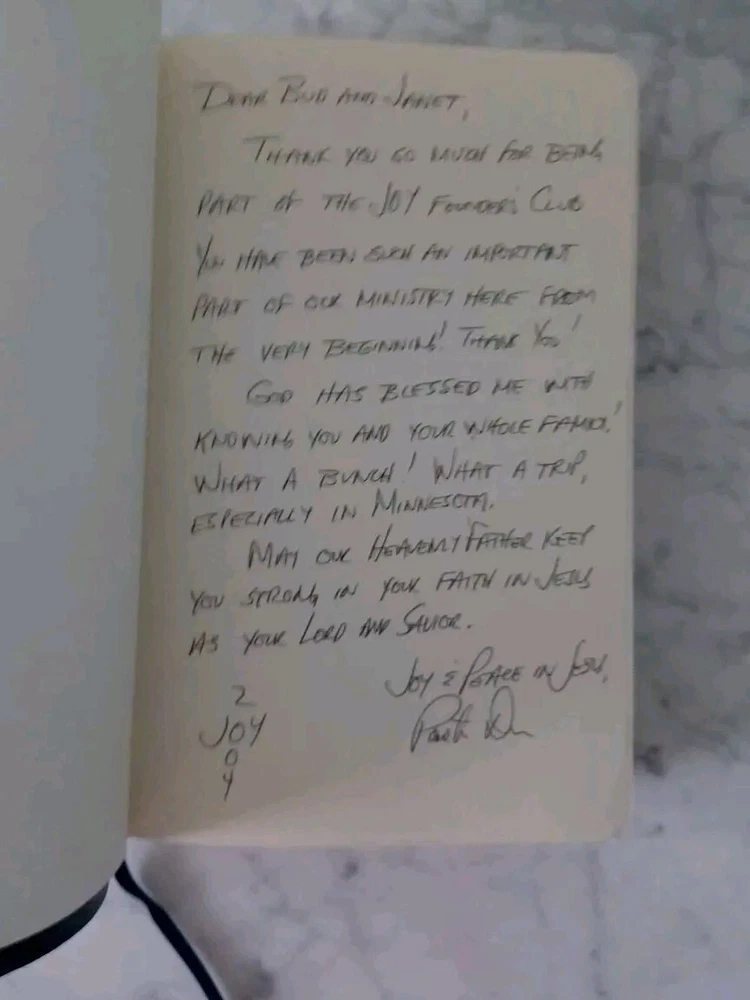 DEAR BUD AND JANET,
THANK YOU SO MUCH FOR BEING
PART OF THE JOY FOUNDER'S CLUB
YOU HAVE BEEN SUCH AN IMPORTANT
PART OF OUR MINISTRY HERE FROM
THE VERY BEGINNING! THANK YOU!
GOD HAS BLESSED ME WITH
KNOWING YOU AND YOUR WHOLE FAMILY!
WHAT A BUNCH! WHAT A TRIP,
ESPECIALLY IN MINNESOTA.
MAY OUR HEAVENLY FATHER KEEP
YOU STRONG IN YOUR FAITH IN JESUS
AS YOUR LORD AND SAVIOR.
JOY & PEACE IN JESUS,
2
JOY
O
Y